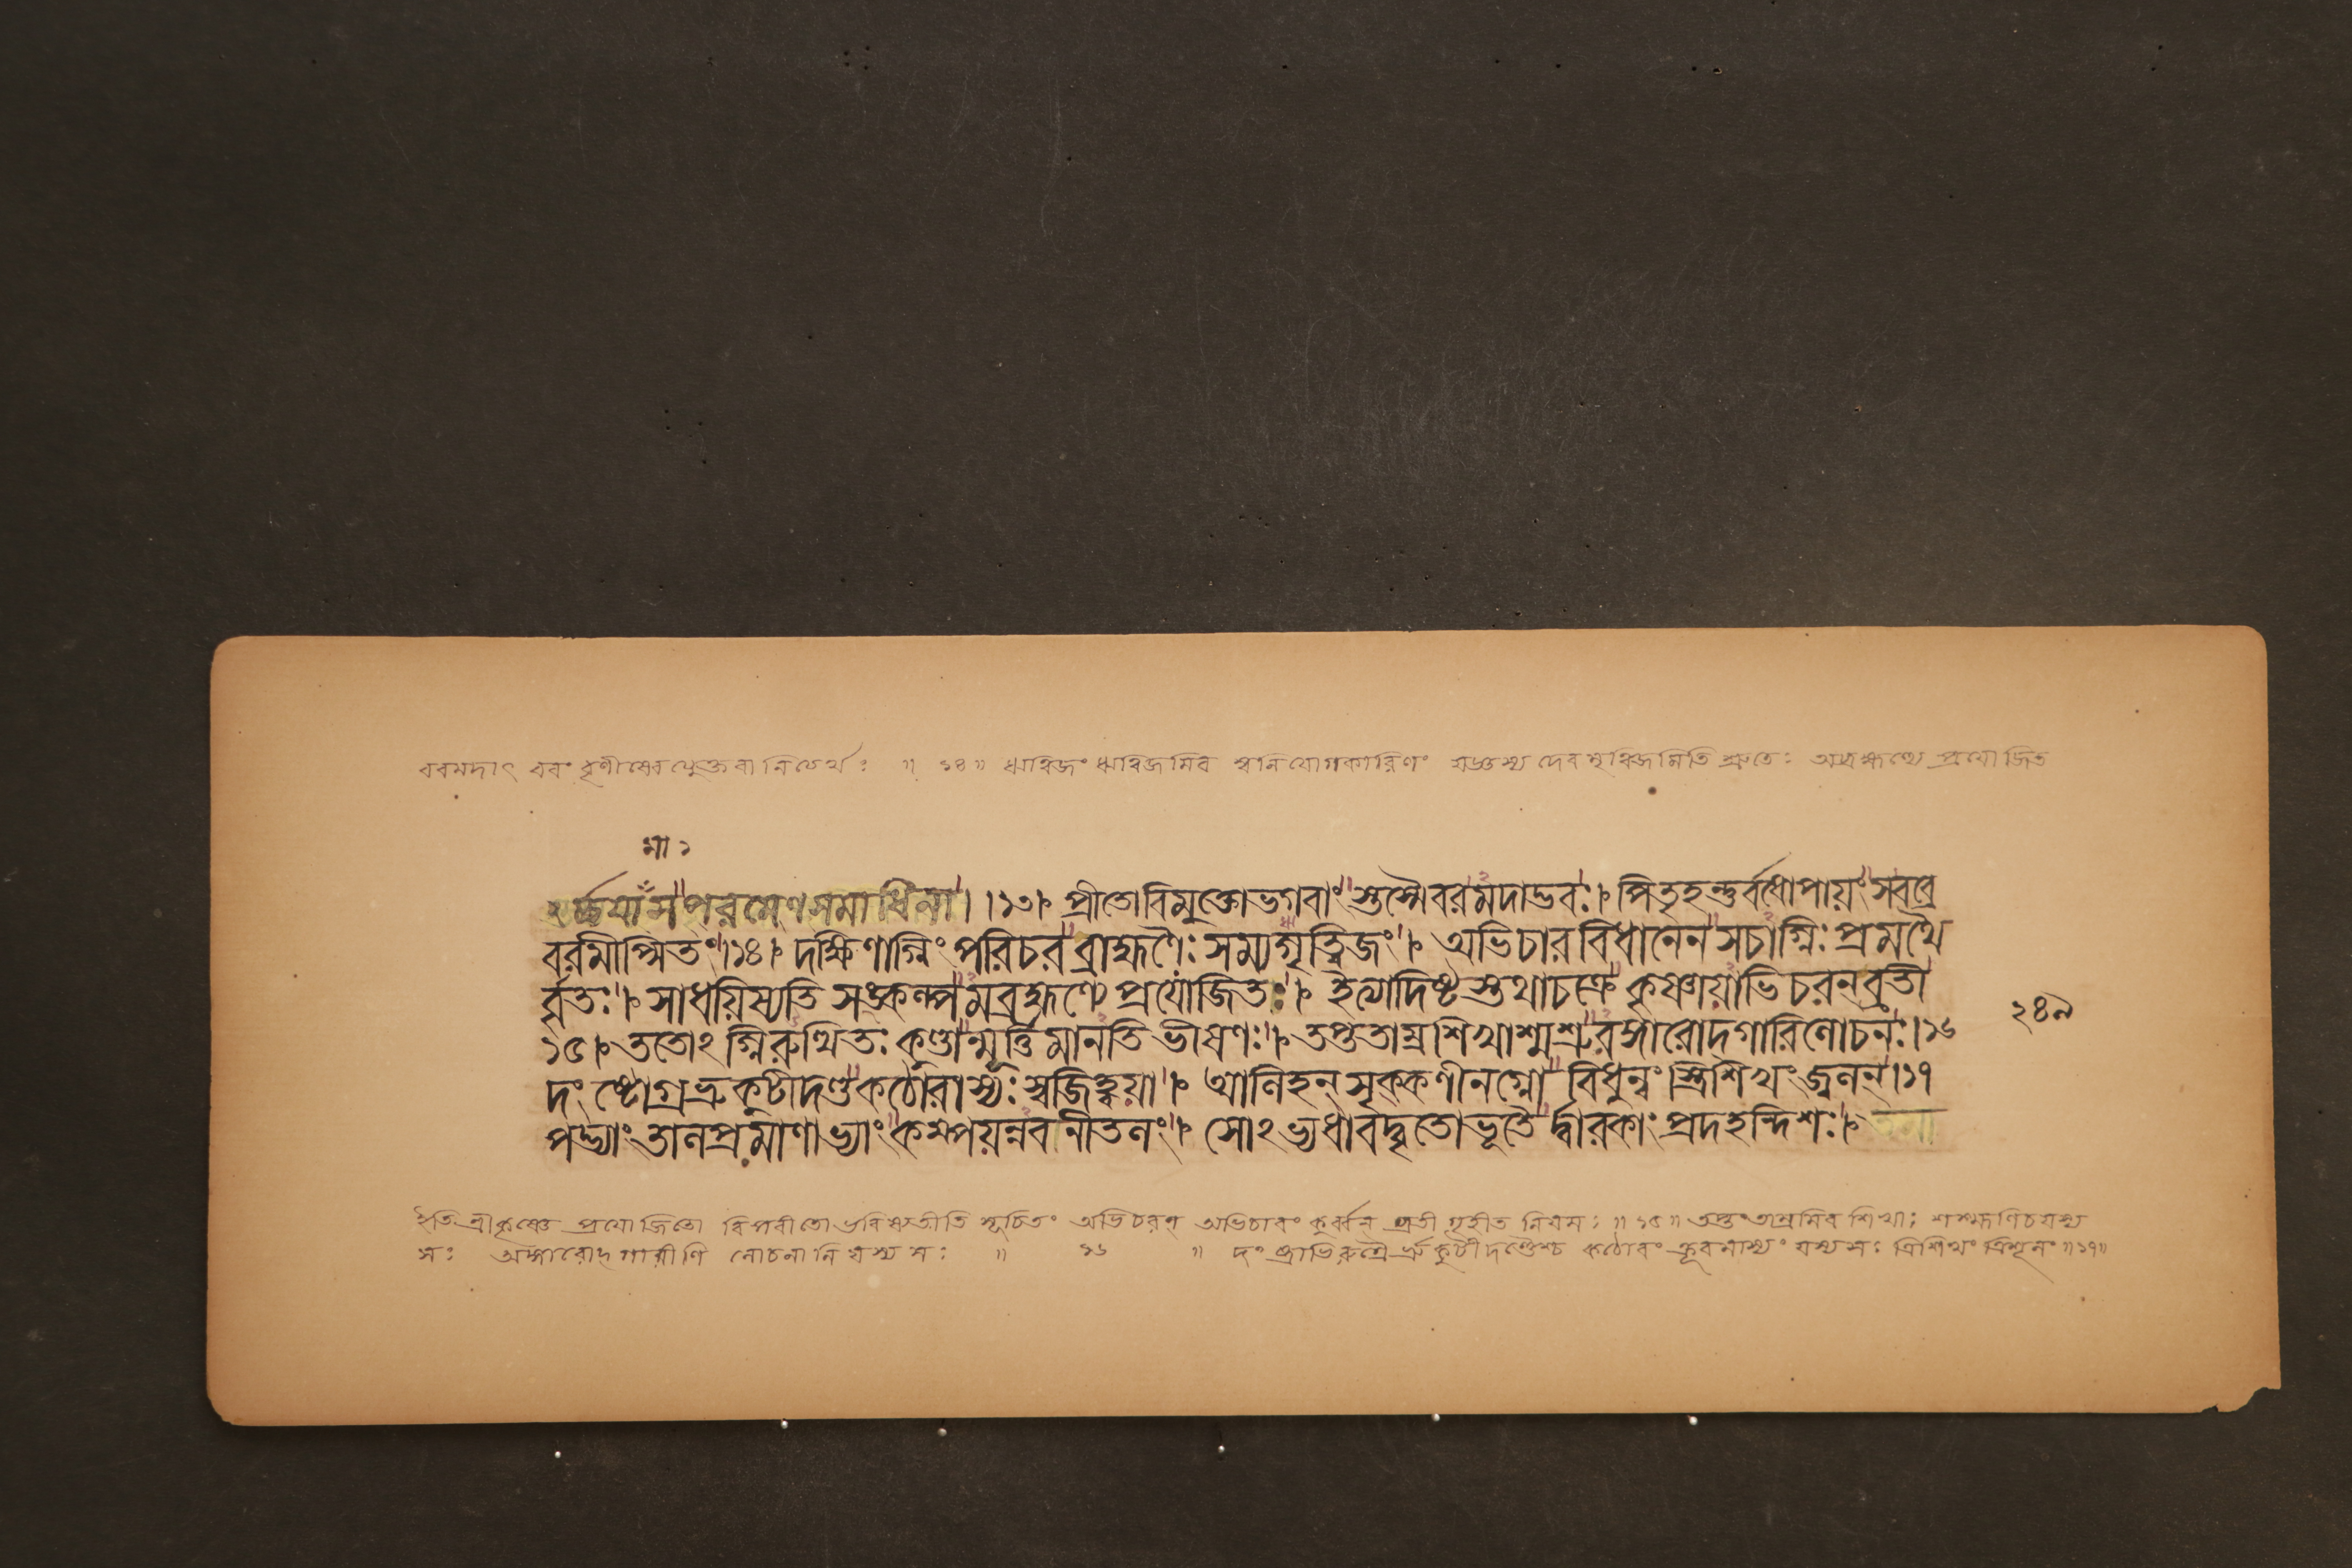 বরমদাৎ বরং বৃণীষ্বেত্যেুক্তবানিত্যর্থঃ ॥ ১৪ ॥ ঋত্বিজং ঋত্বিজমিব স্বনিযোগকারিণং যজ্ঞস্য দেবমৃত্বিজমিতি শ্রুতেঃ অব্রহ্মণ্যে প্রযোজিত
মা ২
র্চ্চযামাস পরমেণসমাধিনা।।১৩। প্রীতোবিমুক্তোভগবাংস্তস্মৈবরমদাদ্ভবঃ। পিতৃহন্তুর্বধোপায়ংসবব্রে
বরমীপ্সিতং।১৪। দক্ষিণাগ্নিং পরিচর ব্রাহ্মণৈঃ সম্যগৃত্বিজং। অভিচার বিধানেন সচাগ্নিঃ প্রমথৈ
র্বৃতঃ। সাধয়িষ্যতি সঙ্কল্পমব্রহ্মণ্যে প্রযোজিতঃ। ইত্যাদিষ্টস্তথাচক্রে কৃষ্ণায়াভিচরন্ ব্রতী
১৫। ততোঽগ্নিরুত্থিতঃ কুণ্ডান্মূর্ত্তিমানতি ভীষণঃ। তপ্ততাম্রশিখাশ্মশ্রুরঙ্গারোদ্গারিলোচনঃ।১৬
দংষ্ট্রোগ্রভ্রুকুটীদণ্ডকঠোরাস্যঃ স্বজিহ্বয়া। আলিহন্ সৃক্কণীনগ্নো বিধুন্বংস্ত্রিশিখং জ্বলন্।১৭
পদ্ভ্যাং তালপ্রমাণাভ্যাং কম্পয়ন্নবনীতলং। সোঽভ্যধাবদ্বৃতোভূতৈর্দ্বারকাং প্রদহন্দিশঃ। তমা
২৪৯
ইতি শ্রীকৃষ্ণে প্রযোজিতো বিপরীতো ভবিষ্যতীতি সূচিতং অভিচরন্ অভিচারং কুর্ব্বন্ ব্রতী গৃহীত নিয়মঃ ॥ ১৫ ॥ তপ্তং তাম্রমিব শিখা; শ্মশ্রূণিচ যস্য
সঃ অঙ্গারোদ্গারীণি লোচনানি যস্য সঃ ॥ ১৬ ॥ দংষ্ট্রাভিরুগ্রৈর্ভ্রুকুটীদণ্ডৈশ্চ কঠোরং ক্রূরমাস্যং যস্য সঃ ত্রিশিখং ত্রিশূলং ॥১৭॥